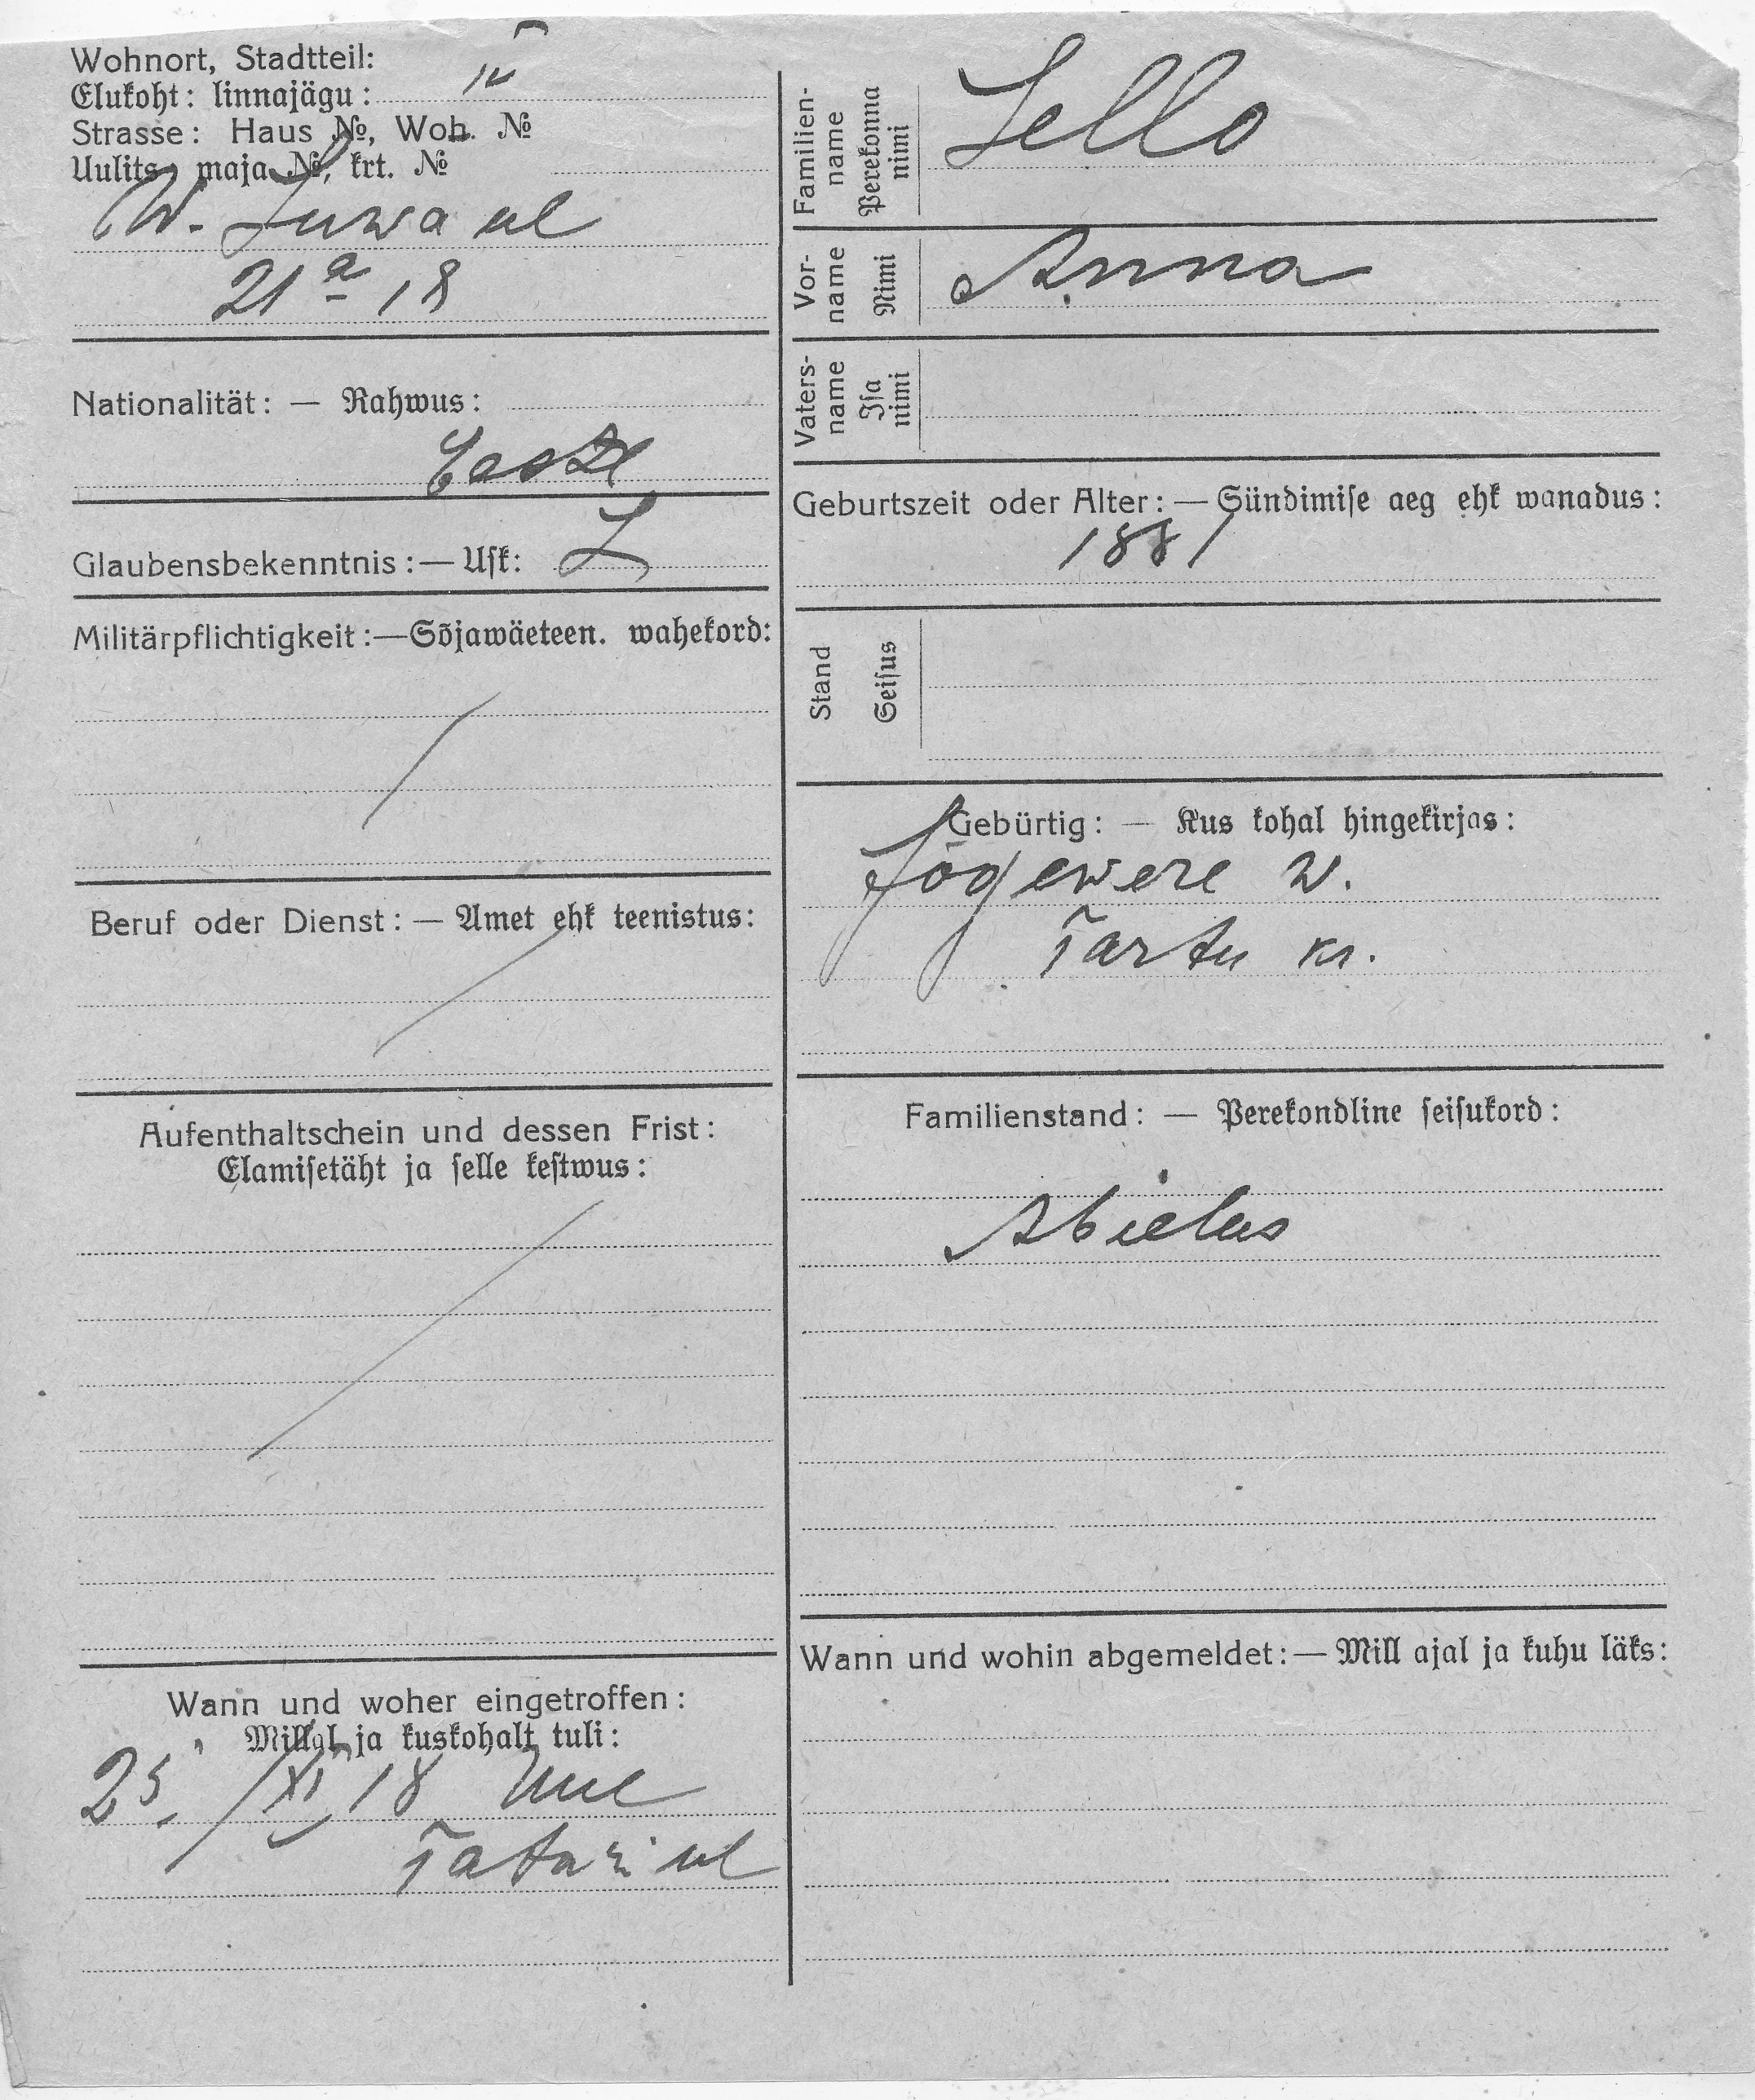 Wohnort, Stadtteil:
Elukoht: linnajägu: IV
Strasse: Haus №, Woh. №
Uulits, maja №, krt. №
21ª 18
Nationalität: — Rahwus:
Glaubensbekenntnis: — Usk: L
Militärpflichtigkeit: — Sõjawäeteen. wahekord:
/
Beruf oder Dienst: — Amet ehk teenistus:
/
Aufenthaltschein und dessen Frist:
Elamisetäht ja selle kestwus:
/
Wann und woher eingetroffen:
Mill al ja kuskohalt tuli:
25. /XI 18 Uue
Tatari ul
Familien-
name
Perekonna
nimi
Sello
Vor-
name
Nimi
Anna
Vaters-
name
Isa
nimi
Geburtszeit oder Alter: — Sündimise aeg ehk wanadus:
1881
Stand
Seisus
Gebürtig: — Kus kohal hingekirjas:
Jõgewere w.
Tartu kr.
Familienstand: — Perekondline seisukord:
Abielus
Wann und wohin abgemeldet: — Mill ajal ja kuhu läks: